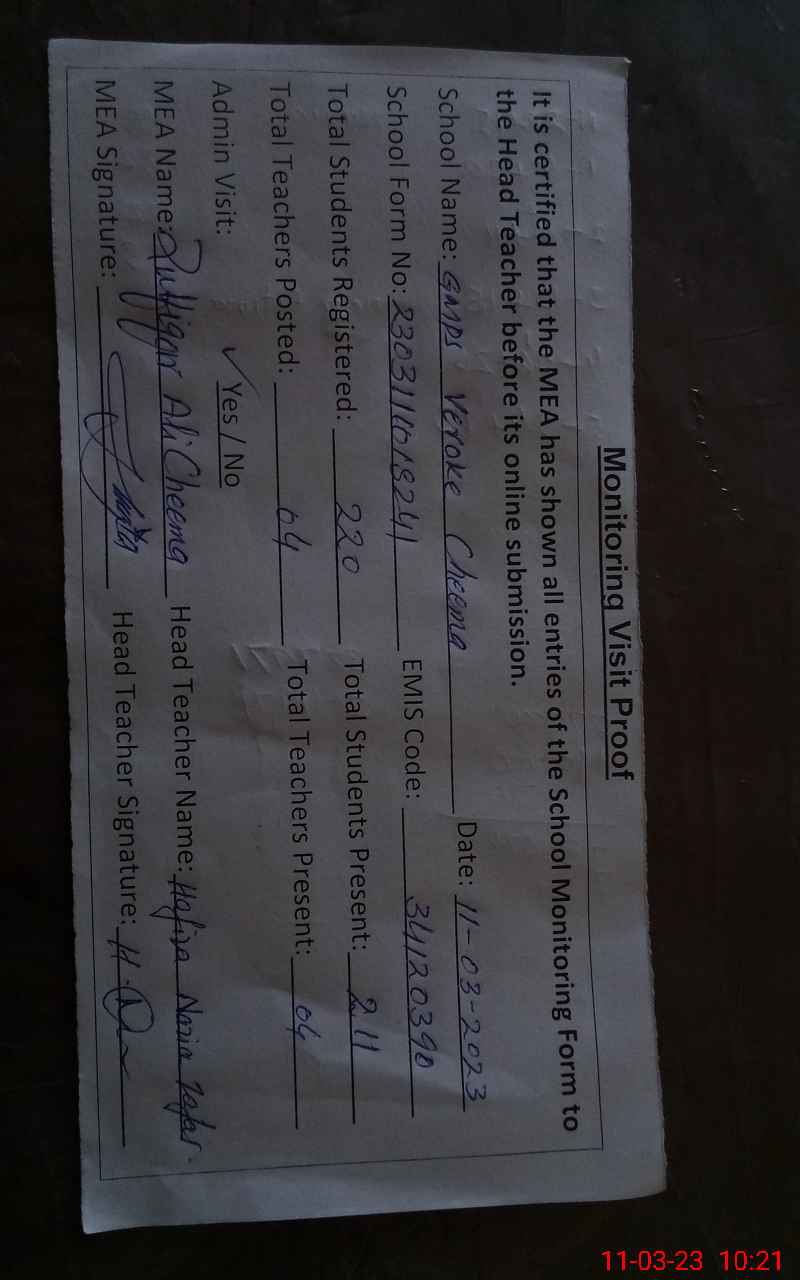 Monitoring Visit Proof
It is certified that the MEA has shown all entries of the School Monitoring Form to
the Head Teacher before its online submission.
School Name: GMPS Veroke Cheema Date: 11-03-2023
School Form No: EMIS Code: 34120390
Total Students Registered: 220 Total Students Present: 211
Total Teachers Posted: 04 Total Teachers Present: 04
Admin Visit: ✓ Yes / No
MEA Name: Zulfiqar Ali Cheema Head Teacher Name: Hafiza Nazia Zafar
MEA Signature: Head Teacher Signature:
11-03-23 10:21